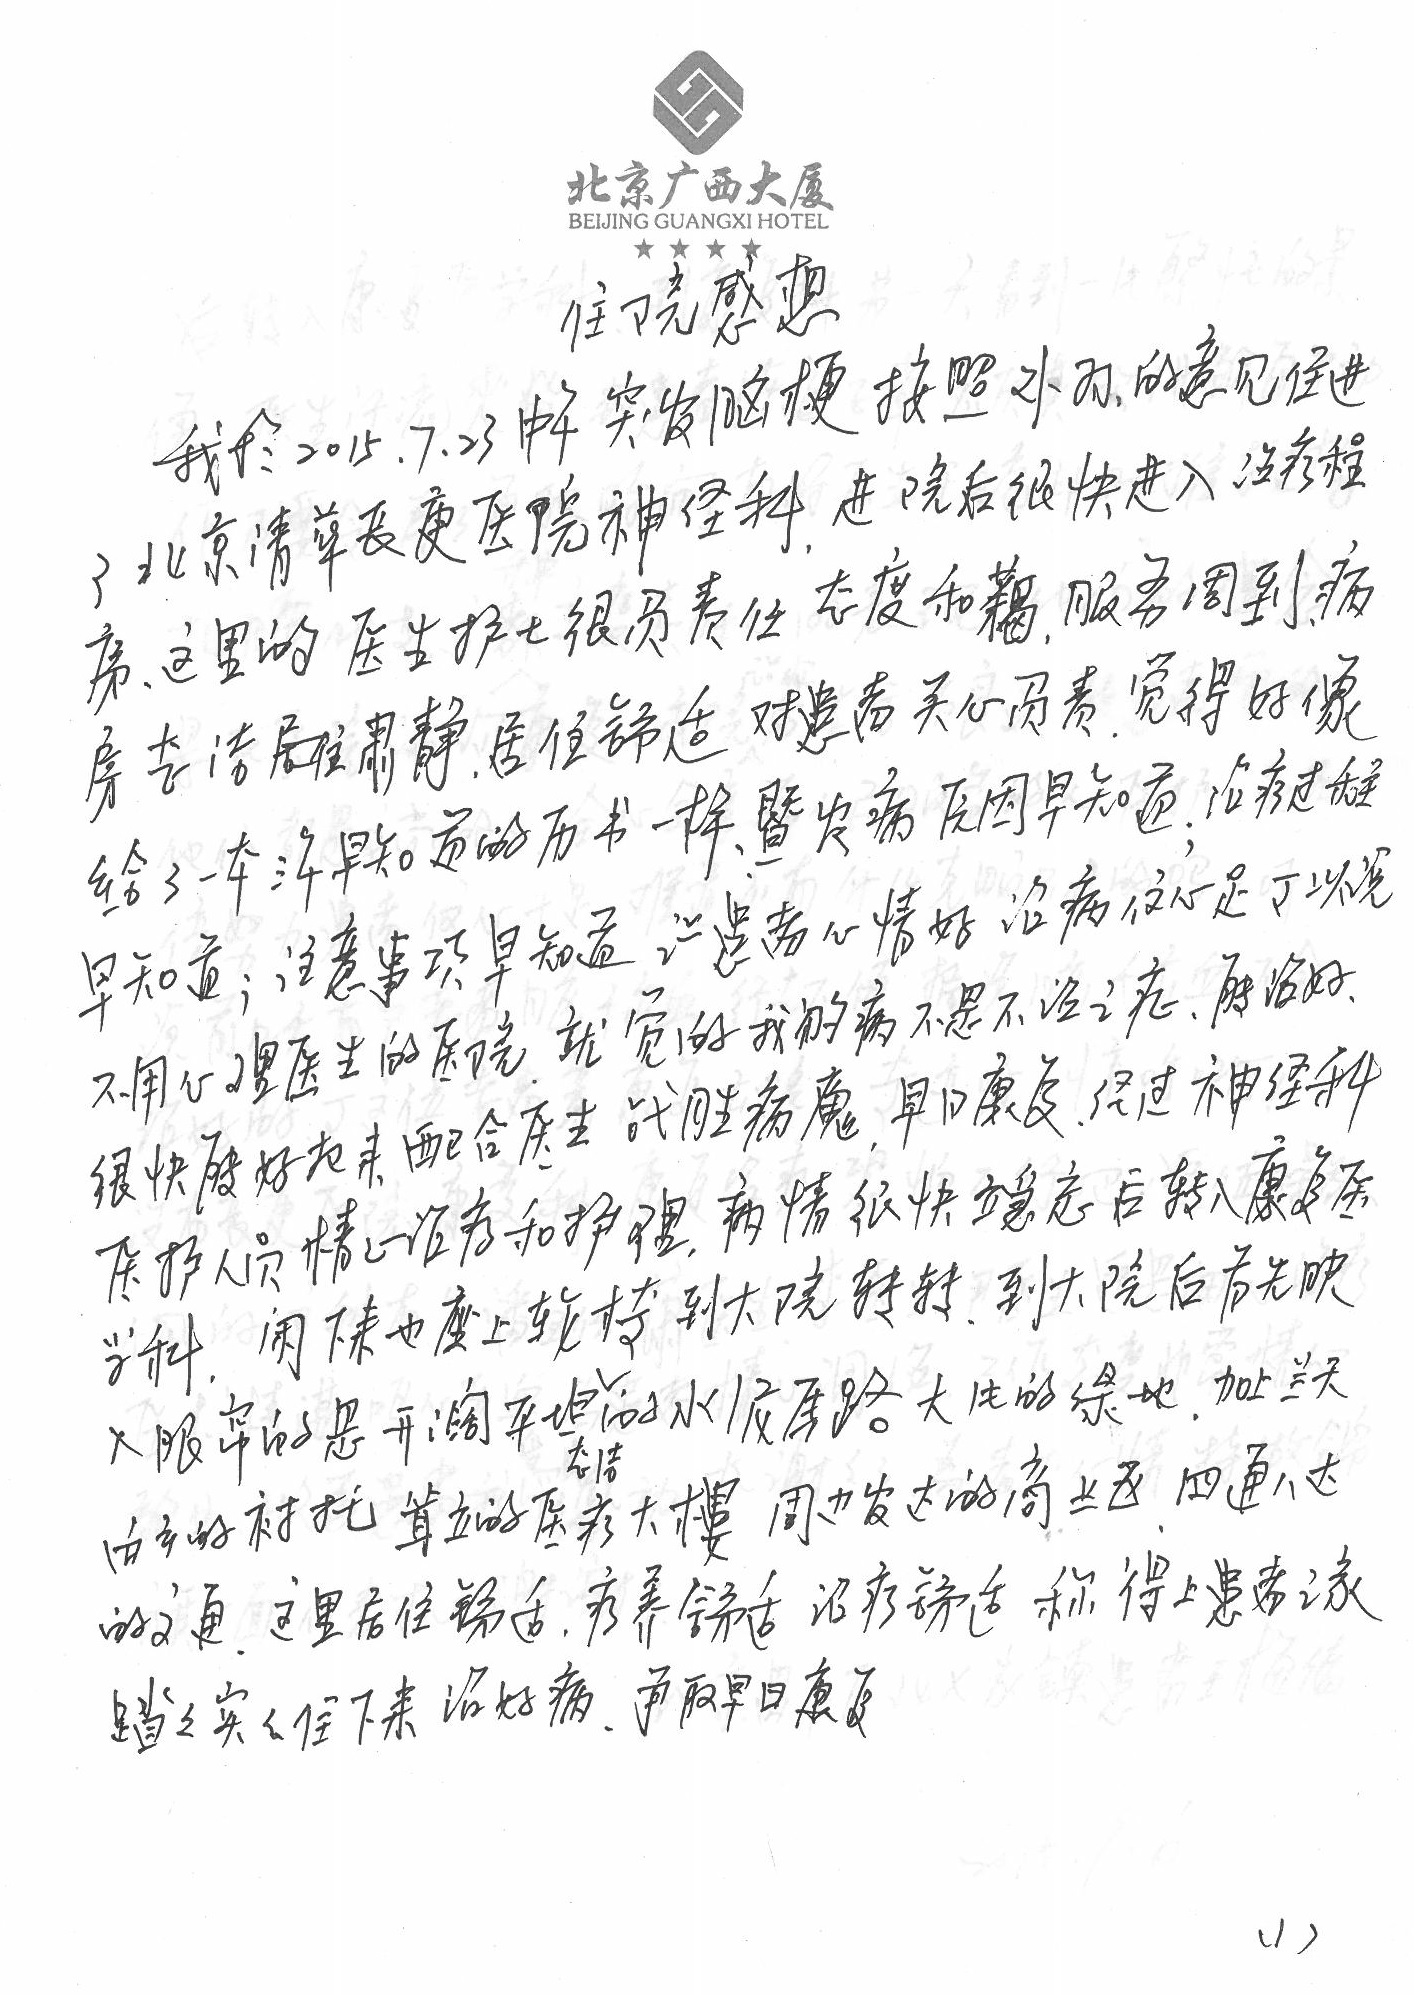 北京广西大厦
BEIJING GUANGXI HOTEL
住院感想
我于2015.7.23中午突发脑梗 按照 的意见住进
了北京清华长庚医院神经科,进院后很快进入治疗程
序、这里的医生护士很负责任 态度和蔼,服务周到,病
房 洁 肃静,居住舒适 对患者关心负责,觉得好像
给了一本 早知道的历书一样、 发病原因早知道;治疗过程
早知道;注意事项早知道 让患者心情好 治病 以说
不用心理医生的医院,就觉的我的病不是不治之症、 治好、
很快 好起来 配合医生战胜病魔,早日康复,经过神经科
医护人员精心治疗和护理,病情很快稳定后转入康复医
学科,闲下来也座上轮椅到大院转转,到大院后首先映
入眼帘的是开阔平坦的水 路。大片的绿地,加上兰天
白云的衬托 耸立的医疗大楼 周边发达的商业区,四通八达
的交通,这里居住舒适,疗养舒适 治疗舒适 称得上患者之家
踏踏实实住下来 治好病、争取早日康复
(1)